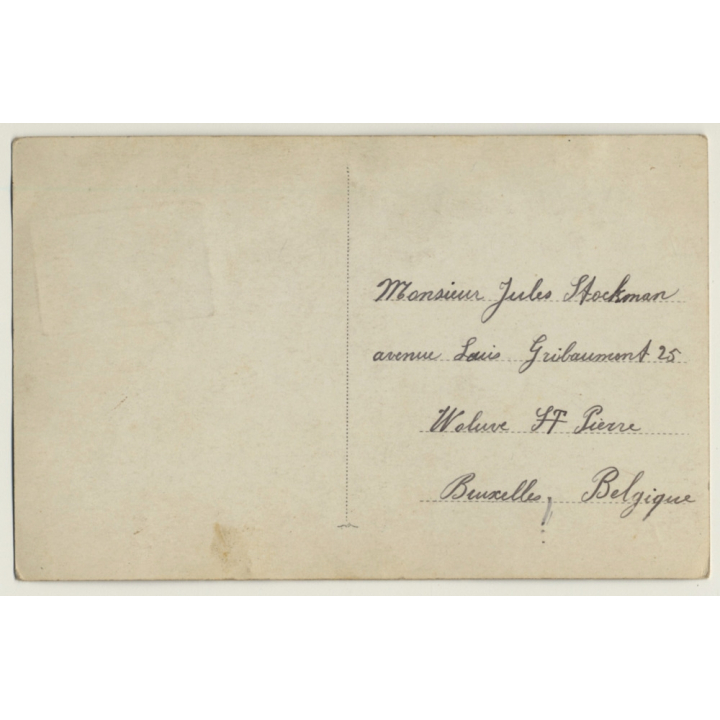 Monsieur Jules Stockman
avenue Louis Gribaumont 25
Woluve ST Pierre
Bruxelles, Belgique